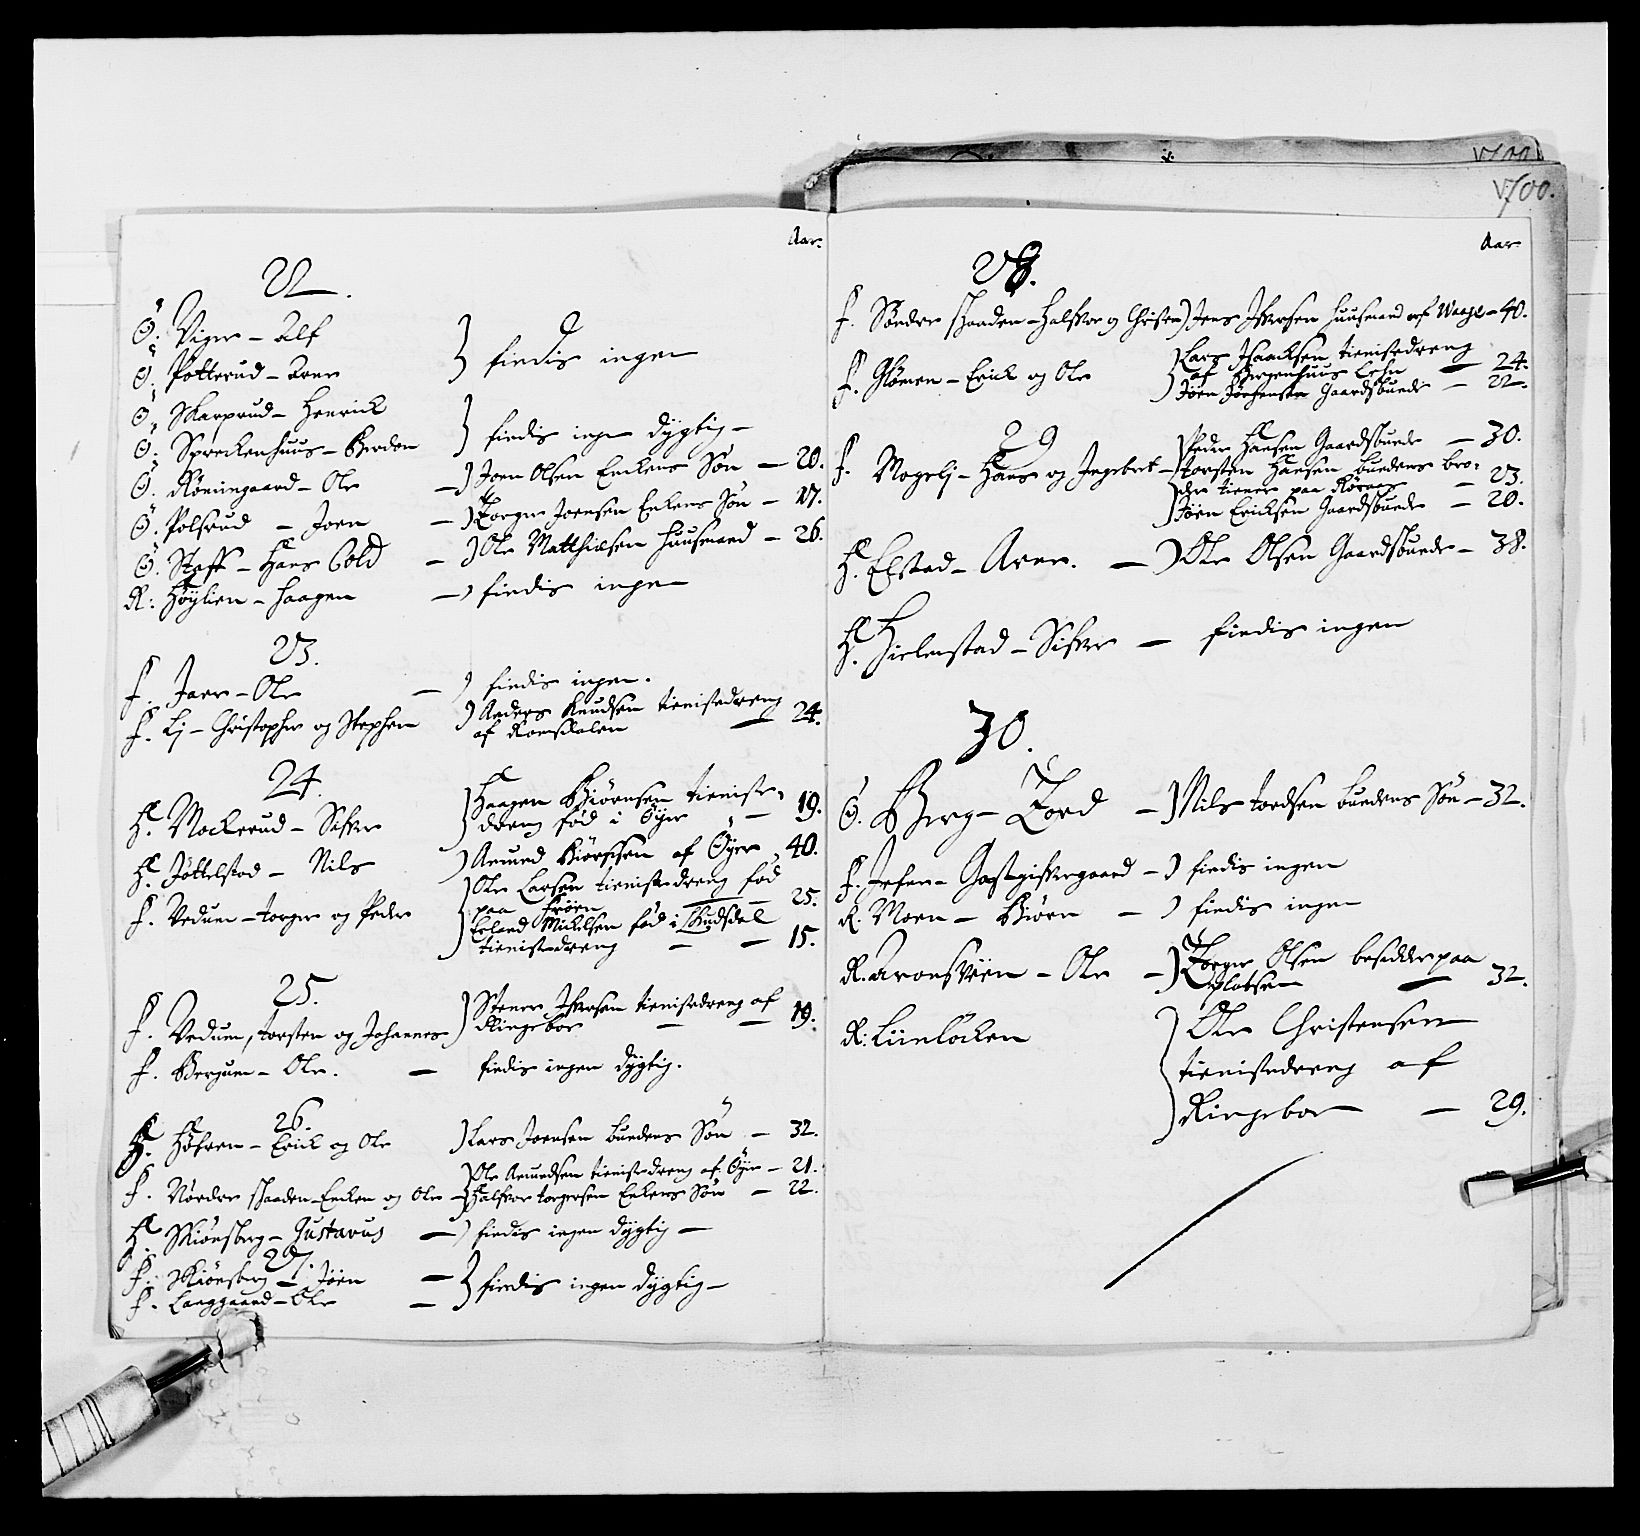 Aar.
22.
Ö. Viger - Alf
Ö. Potterud - Arne } findis ingen
Ö. Skarprud - Henrick
Ö. Spreckenhuus - Gudon } findis ingen dygtig -
Ö. Röningaard - Ole - ) Joen Olsen Enckens Sön - 20.
Ö. Polsrud - Joen - ) Torger Joensen Enckens Sön - 17.
Ö. Staff - Hans Cold - ) Ole Matthiesen huusmand - 26.
R: Höylien - Haagen - ) findis ingen
23.
F. Jaer - Ole - ) findis ingen.
F. Lj - Christopher og Stephen ) Anders Knudsen tienistedreng
af Romsdalen - 24.
24.
H. Mockerud - Siffer ) Haagen Biörnsen tieniste-
dreng fød i Öyer - 19.
H. Jöttelstad - Nils ) Amund Biörnsen af Öyer, 40.
F. Vedum - torger og Peder ) Ole Larsen tienistedreng fød
paa Froen - 25.
Erland Mickelsen fød i Gudsdal
tienistedreng - - 15.
25.
F. Vedum, torsten og Johannes ) Stener Iffversen tienistedreng af
Ringeboe - - 19.
F. Bergum - Ole. - findis ingen dygtig.
26.
H. Höfren - Erick og Ole ) Lars Joensen buendens Sön - 32.
F. Nörder skaaden - Encken og Ole - ) Ole Amundsen tienistedreng af Öyer - 21.
Halffvor torgersen Enckens Sön - 22.
H. Skiönsberg - Gustavus - ) findis ingen dygtig -
27.
F. Skiönsberg - Jöen -
F. Langgaard - Ole - } findis ingen dygtig -
1700.
1700.
Aar
28.
F. Sönder skaaden - Halffvor og Christen ) Jens Iffversen huusmand af Waage - 40.
F. Glömen - Erick og Ole ) Lars Isaacksen tienistedreng
af Bergenhuus Lehn - 24.
Jöen Johansen Gaardsbuende - 22.
29
F. Mogelj - Hans og Ingebret - ) Peder Hansen Gaardsbuende - 30.
torsten Hansen buendens bro-
der tiener paa Röraas - 23.
Jöen Ericksen Gaardsbuende - 20.
H. Elstad - Arne. - ) Ole Olsen Gaardsbuende - 38.
H. Hielmstad - Siffver - findis ingen
30.
Ö. Berg - Tord - ) Nils tordsen buendens Sön - 32.
F. Jefne - Gastgiffvergaard - ) findis ingen
R. Moen - Biören - ) findis ingen
R. Aronsveen - Ole - ) Torger Olsen besidder paa
pladsen - 32.
R: Liinlöcken ) Ole Christensen
tienistedreng af
Ringeboe - 29.